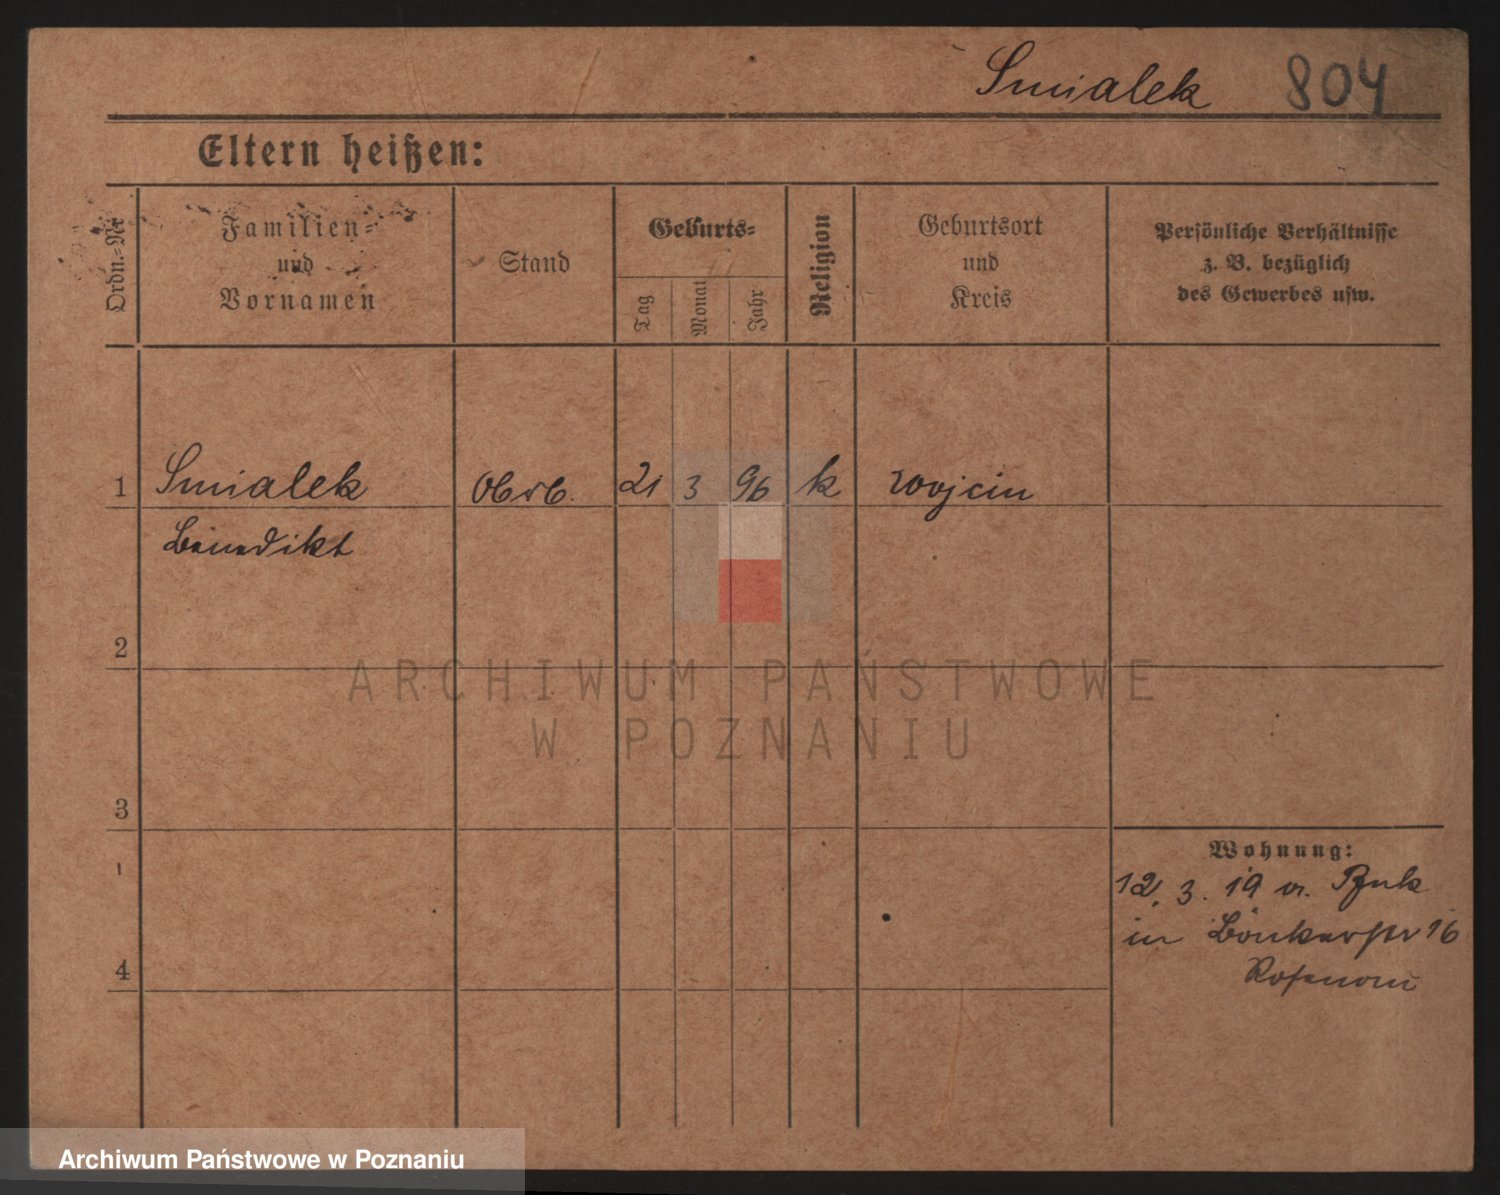 Smialek 804
Eltern heißen:
Ordn.-Nr.
Familien-
und
Vornamen
Stand
Geburts-
Tag
Monat
Jahr
Religion
Geburtsort
und
Kreis
Persönliche Verhältnisse
z. B. bezüglich
des Gewerbes usw.
1 Smialek 21 3 96 k Wojcin
Benedikt
2
3
4
Wohnung:
12. 3. 19 v. Buk
in Bönkerstr 16
ARCHIWUM PAŃSTWOWE
W POZNANIU
Archiwum Państwowe w Poznaniu